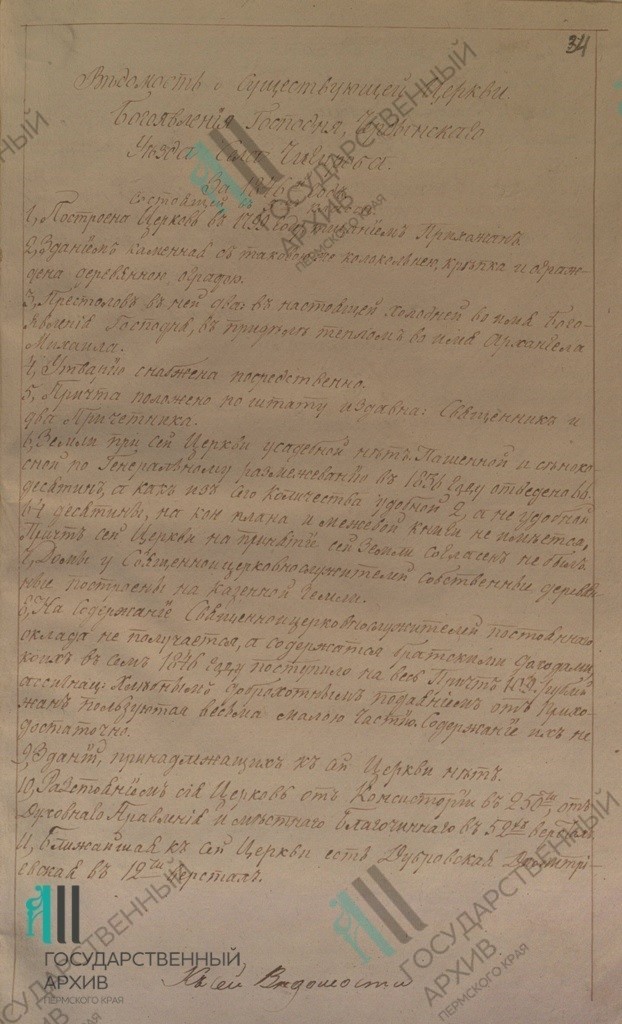 34
Вѣдомость о существующей Церкви
Богоявленія Господня,
Уѣзда села
За 1846 годъ
состоящей въ
1, Построена Церковь въ тщаніемъ Прихожанъ
2, Зданіемъ каменная съ таковою же колокольнею, крѣпка и ограж-
дена деревянною оградою.
3, Престоловъ въ ней два: въ настоящей холодной во имя Бого-
явленія Господня, въ придѣлѣ тепломъ во имя Архангела
Михаила.
4, Утварію снабжена посредственно.
5, Причта положено по штату издавна: Священникъ и
два Причетника.
6, Земли при сей Церкви усадебной нѣтъ. Пашенной и сѣноко-
сной по Генеральному размежеванію въ 1836 году отведено 66
десятинъ, а какъ изъ сего количества удобной 2, а не удобной
64 десятины, на кои плана и межевой книги не имѣется,
Причтъ сей Церкви на принятіе сей Земли согласенъ не былъ
7, Домы у Священноицерковнослужителей собственные деревян-
ные построены на казенной Земли.
8, На Содержаніе Священноицерковнослужителей постояннаго
оклада не получается, а содержатся братскими доходами
коихъ въ семъ 1846 году поступило на весь Причтъ рубл.
ассигнац: Хлѣбнымъ доброхотнымъ подаяніемъ отъ Прихо-
жанъ пользуются весьма малою частію. Содержаніе ихъ не
достаточно.
9, Зданій, принадлежащихъ къ сей Церкви нѣтъ.
10, Разстояніемъ сія Церковь отъ Консисторіи въ 250ти, отъ
Духовнаго Правленія и мѣстнаго Благочиннаго въ 52хъ верстахъ
11, Ближайшая къ сей Церкви есть Дубровская Димитрі-
евская въ 12ти верстахъ.
Къ сей Вѣдомости
ГОСУДАРСТВЕННЫЙ
АРХИВ
ПЕРМСКОГО КРАЯ